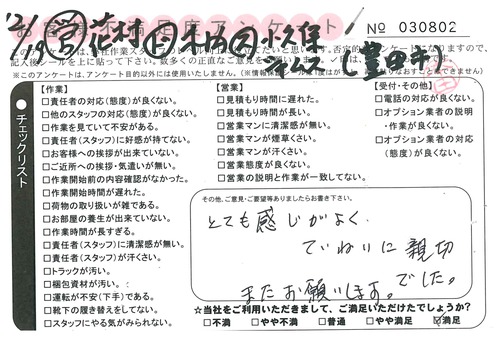 お客様満足度アンケート
№ 030802
'21/19 ㊢花村 ㊤木内 ㊦小久保
(豊田市)
記入後シールを上に貼って下さい。数多くの正直なご意見を
※このアンケートは、アンケート目的以外には使用しません。
チェックリスト
【作業】
□責任者の対応（態度）が良くない。
□他のスタッフの対応（態度）が良くない。
□作業を見ていて不安がある。
□責任者（スタッフ）に好感が持てない。
□お客様への挨拶が出来ていない。
□ご近所への挨拶・気遣いが無い。
□作業開始前の内容確認がなかった。
□作業開始時間が遅れた。
□荷物の取り扱いが雑である。
□お部屋の養生が出来ていない。
□作業時間が長すぎる。
□責任者（スタッフ）に清潔感が無い。
□責任者（スタッフ）が汗くさい。
□トラックが汚い。
□梱包資材が汚い。
□運転が不安（下手）である。
□靴下の履き替えをしてない。
□スタッフにやる気がみられない。
【営業】
□見積もり時間に遅れた。
□見積もり時間が長い。
□営業マンに清潔感が無い。
□営業マンが煙草くさい。
□営業マンが汗くさい。
□営業態度が良くない。
□営業の説明と作業が一致してない。
【受付・その他】
□電話の対応が良くない。
□オプション業者の説明
・作業が良くない。
□オプション業者の対応
（態度）が良くない。
その他、ご意見・ご要望等ありましたらお書き下さい。
とても感じがよく、
ていねいに親切
でした。
またお願いします。
☆当社をご利用いただきまして、ご満足いただけたでしょうか？
□不満 □やや不満 □普通 □やや満足 ☑満足